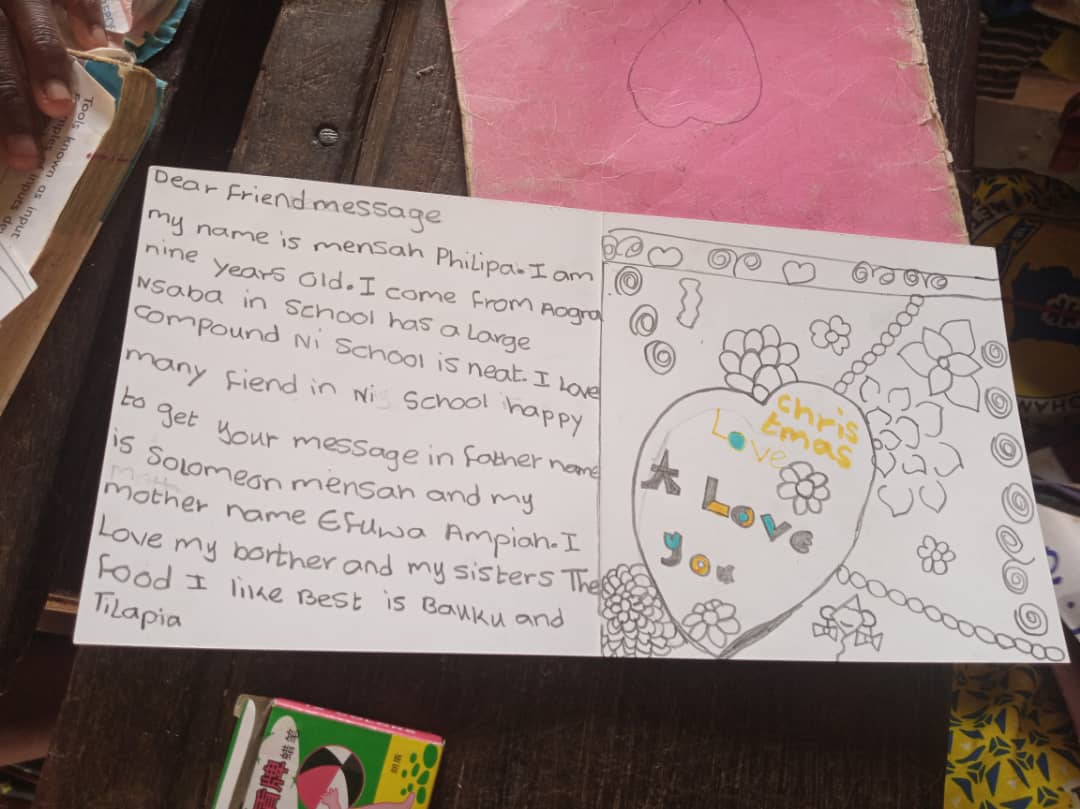 Dear Friend message
my name is mensah Philipa. I am
nine years old. I come from Aogra
Nsaba in School has a Large
compound Ni School is neat. I Love
many Fiend in Ni School happy
to get your message in father name
is Solomeon mensah and my
mother name Efuwa Ampiah. I
Love my borther and my sisters The
food I liike Best is Bauku and
Tilapia
chris
tmas
Love
A Love
you
Tools known as input
inputs
蜡笔